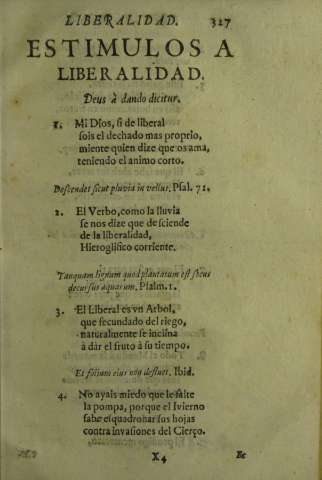 LIBERALIDAD. 327
ESTIMULOS A
LIBERALIDAD.
Deus à dando dicitur.
1. Mi Dios, si de liberal
sois el dechado mas proprio,
miente quien dize que os ama,
teniendo el animo corto.
Descendet sicut pluvia in vellus. Psal. 71.
2. El Verbo, como la lluvia
se nos dize que desciende
de la liberalidad,
Hieroglifico corriente.
Tanquam lignum quod plantatum est secus
decursus aquarum. Psalm. 1.
3. El Liberal es vn Arbol,
que fecundado del riego,
naturalmente se inclina
à dàr el fruto à su tiempo.
Et folium eius non defluet. Ibid.
4. No ayais miedo que le falte
la pompa, porque el Ivierno
sabe esquadronar sus hojas
contra invasiones del Cierço.
X4 Be